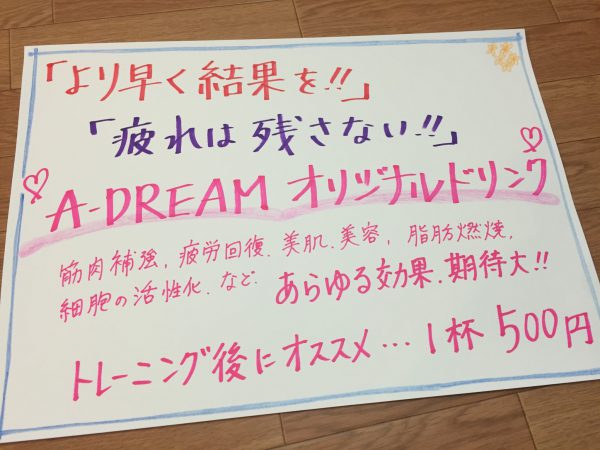 「より早く結果を!!」
「疲れは残さない!!」
A-DREAM オリジナルドリンク
筋肉補強、疲労回復、美肌、美容、脂肪燃焼、
細胞の活性化、など、あらゆる効果、期待大!!
トレーニング後にオススメ…1杯500円